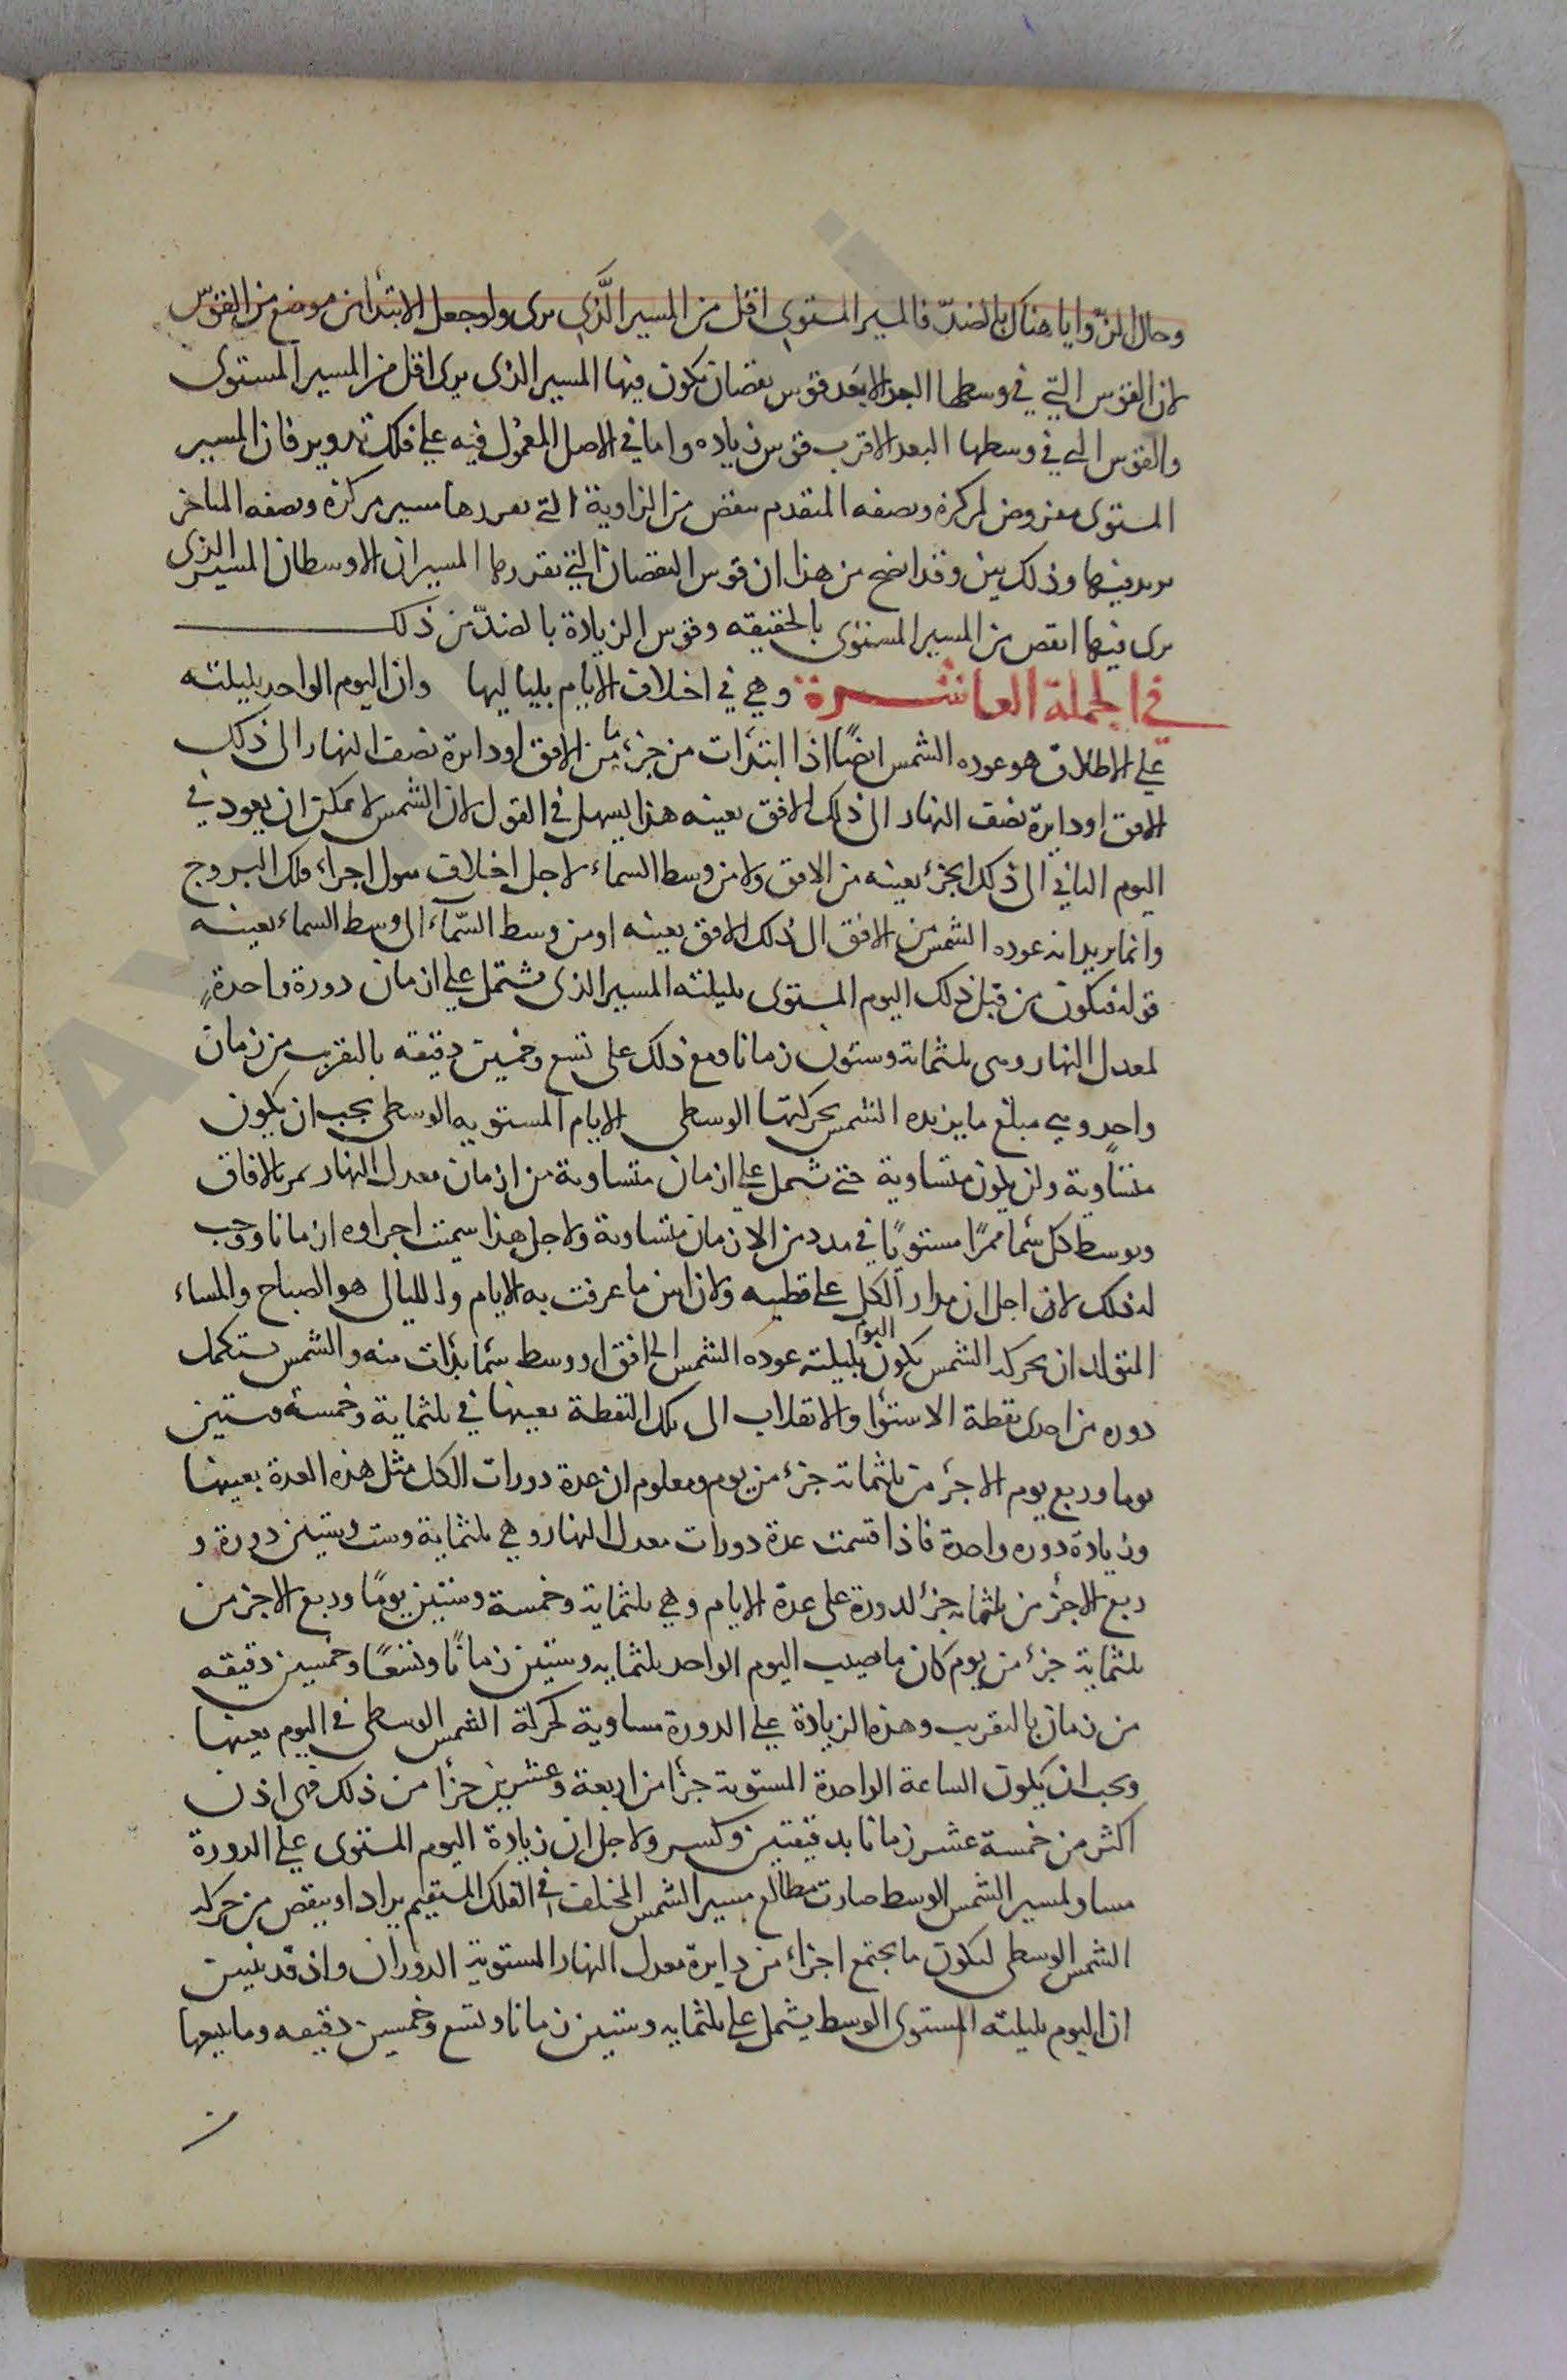 وحال الزوايا هناك بالضدّ فالمسير المستوى اقل من المسير الَّذى يرى ولو جعل الابتدا من موضع من القوس
لان القوس التي في وسطها البعد الابعد قوس نقصان يكون فيها المسير الذى يرى اقل من المسير المستوى
والقوس التي في وسطها البعد الاقرب قوس زياده واما في الاصل المعمول فيه على فلك تدوير فان المسير
المستوى مفروض لمركزه ونصفه المتقدم ينقص من الزاوية التي يفردها مسير مركزه ونصفه المتاخر
يزيد فيها وذلك بين وقد اتضح من هذا ان قوس النقصان التي يفردها المسيران الاوسطان المسير الذى
يرى فيها انقص من المسير المستوى بالحقيقه وقوس الزيادة بالضدّ من ذلك
في الجملة العاشرة وهي في اختلاف الايام بلياليها وان اليوم الواحد بليلته
على الاطلاق هو عوده الشمس ايضًا اذا ابتدأت من جزء ما من الافق او دايرة نصف النهار الى ذلك
الافق او دايرة نصف النهار الى ذلك الافق بعينه هذا يسهل في القول لان الشمس لا يمكن ان يعود في
اليوم الثاني الى ذلك الجزء بعينه من الافق ولا من وسط السماء لاجل اختلاف ميول اجزاء فلك البروج
وانما يريد انه عوده الشمس من الافق الى ذلك الافق بعينه او من وسط السّماء الى وسط السماء بعينه
قوله فيكون من قبل ذلك اليوم المستوى بليلته المسير الذى يشتمل على ازمان دورة واحدةٍ
لمعدل النهار وهى ثلثماية وستون زمانا ومع ذلك على تسع وخمسين دقيقه بالتقريب من زمان
واحد وهي مبلغ ما يزيده الشمس بحركتها الوسطى الايام المستويه الوسطى يجب ان يكون
متساوية ولن يكون متساوية حتى تشمل على ازمان متساوية من ازمان معدل النهار يمر بالافاق
وبوسط كل سما ممرًا مستويًا في مدد من الازمان متساوية ولاجل هذا سميت اجزاوه ازمانا ووجب
له ذلك لان اجل ان مدار الكل على قطبيه ولان ابين ما عرفت به الايام والليالى هو الصباح والمساء
ان بحركة الشمس يكون اليوم بليلته عوده الشمس الى افق او وسط سما بدات منه والشمس تستكمل
دوره من احدى نقطة الاستوا والانقلاب الى تلك النقطة بعينها في ثلثماية وخمسة وستين
يوما وربع يوم الا جزء من ثلثماية جزء من يوم ومعلوم ان عدة دورات الكل مثل هذه العدة بعينها
وزيادة دوره واحدة فاذا قسمت عدة دورات معدل النهار وهي ثلثماية وست وستين دورة و
ربع الا جزء من ثلثماية جزء لدورة على عدة الايام وهي ثلثماية وخمسة وستين يومًا وربع الا جزء من
ثلثماية جزء من يوم كان ما يصيب اليوم الواحد ثلثمايه وستين زمانًا وتسعًا وخمسين دقيقه
من زمان بالتقريب وهذه الزيادة على الدورة مساوية لحركة الشمس الوسطى في اليوم بعينها
ويجب ان يكون الساعة الواحدة المستوية جزءا من اربعة وعشرين جزأ من ذلك فهى اذن
اكثر من خمسة عشر زمانا بدقيقتين وكسر ولاجل ان زيادة اليوم المستوى على الدورة
مساو لمسير الشمس الوسط صارت مطالع مسير الشمس المختلف في الفلك المستقيم يزاد او ينقص من حركة
الشمس الوسطى ليكون ما يجتمع اجزاء من دايرة معدل النهار المستوية الدوران واذ قد تبين
ان اليوم بليلته المستوى الوسط يشمل على ثلثمايه وستين زمانا وتسع وخمسين دقيقه وما يتبعها